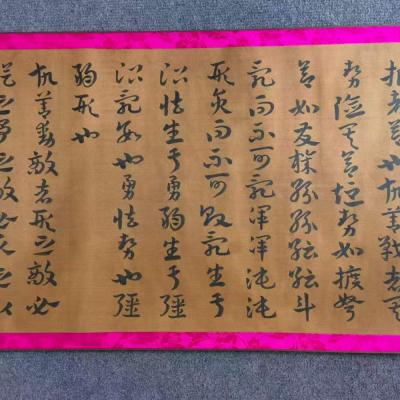 折者節也故善戰者其
势險其節短势如彍弩
節如發機紛紛紜紜斗
亂而不可亂渾渾沌沌
形圓而不可敗亂生于
治怯生于勇弱生于彊
治亂數也勇怯势也彊
弱形也
故善動敵者形之敵必
從之予之敵必取之以